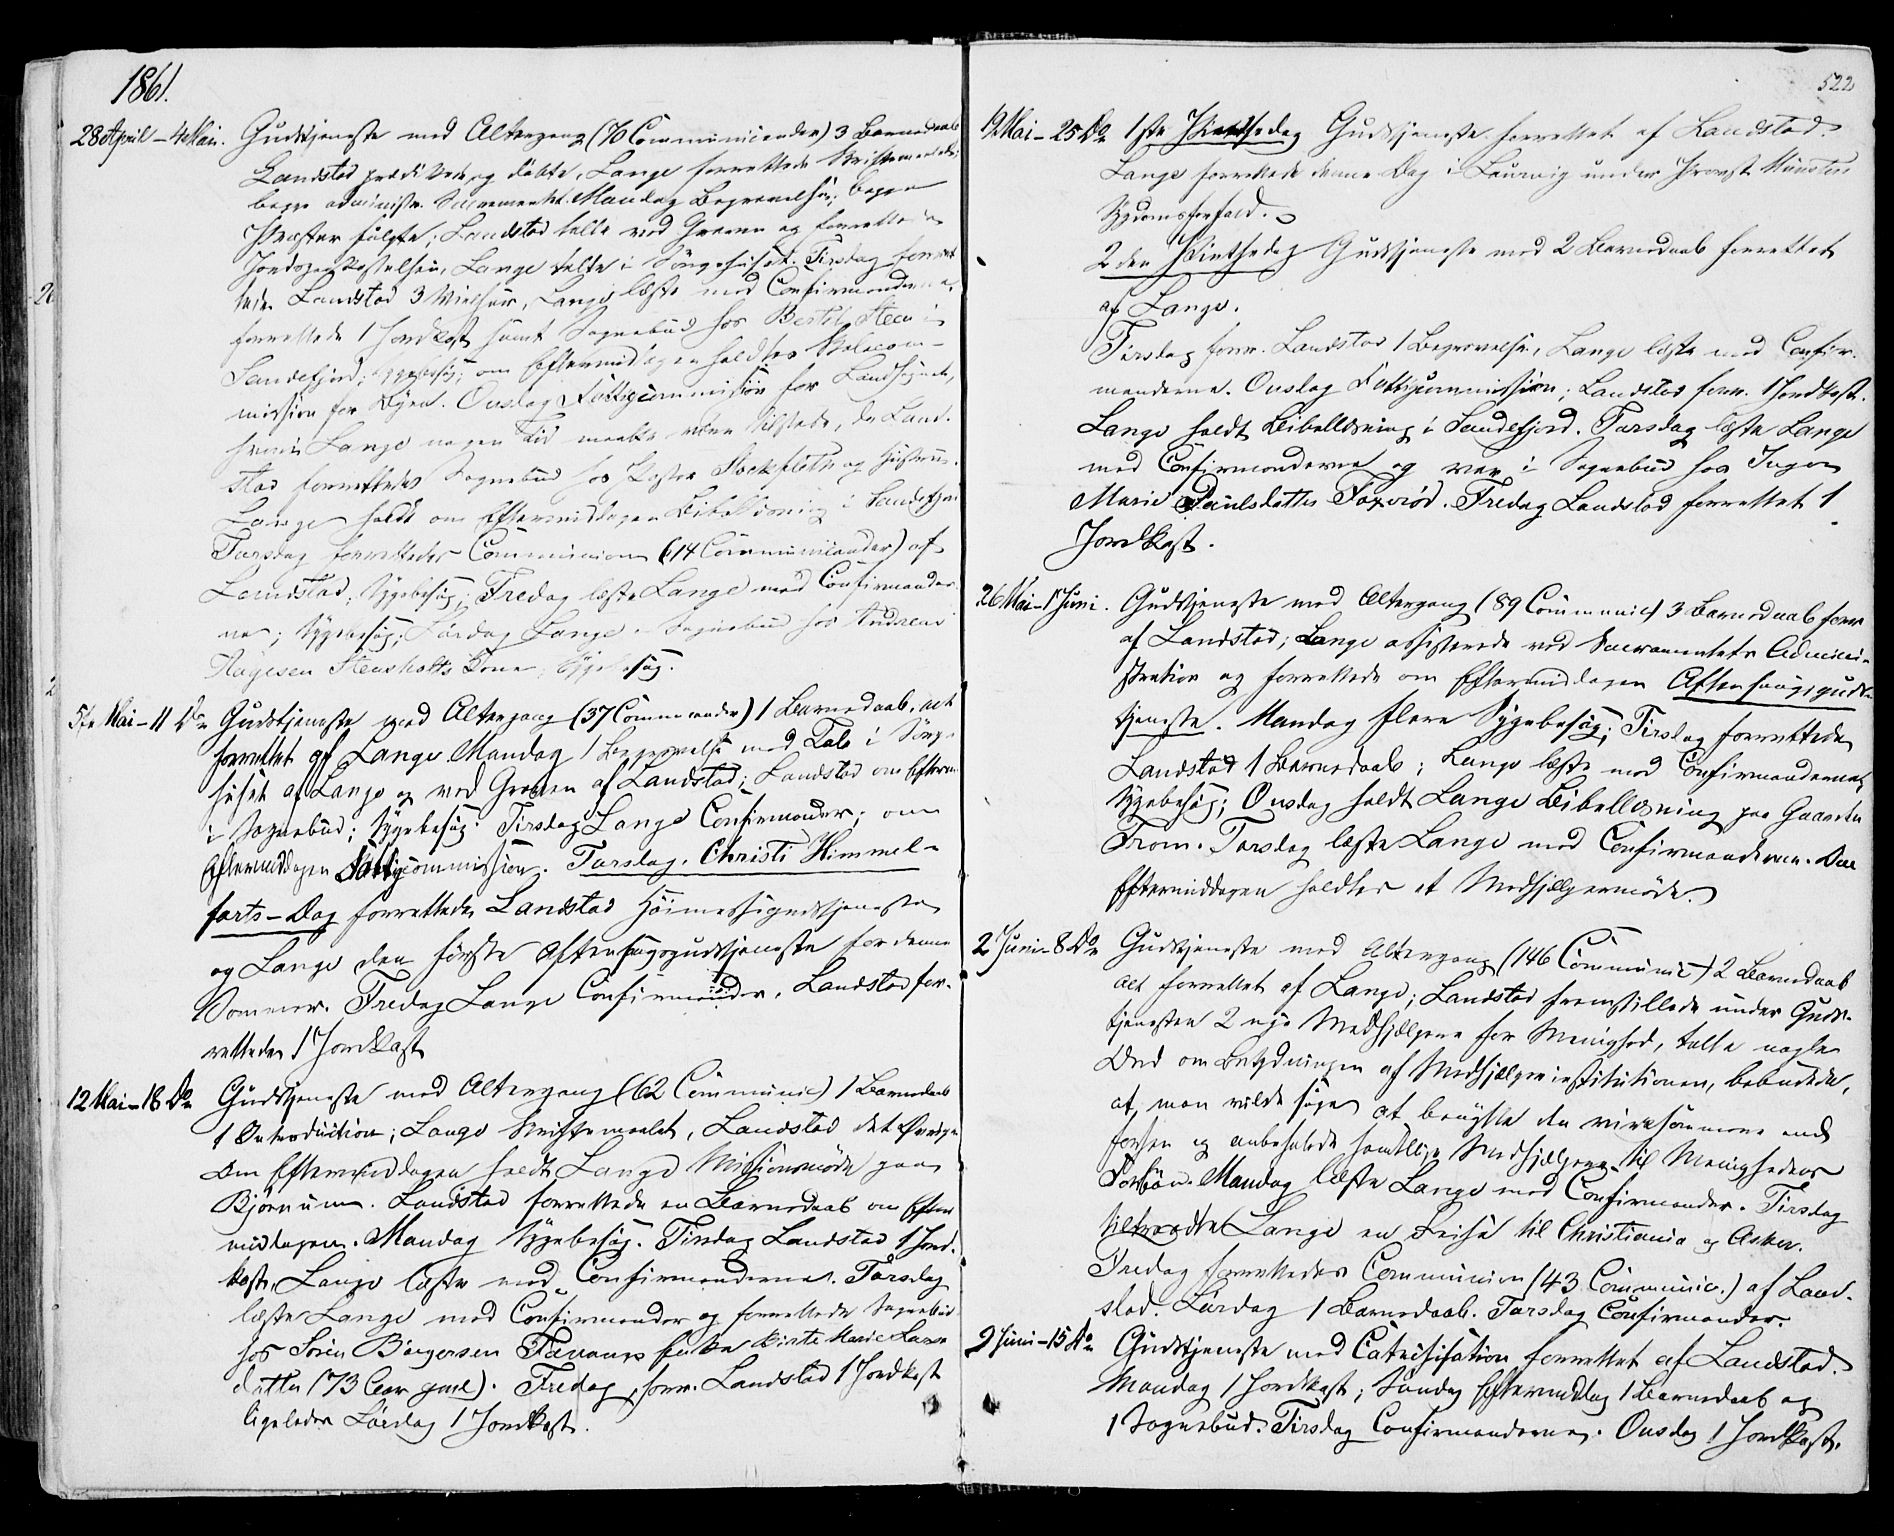 1861.
28 April – 4 Mai. Gudstjeneste med Altergang (70 Communicender) 3 Barnedaab
Landstad prædikede og döbte, Lange forrettede Skriftemaalet;
begge administr. Sacramentet. Mandag Begravelse; begge
Præster fulgte; Landstad talte ved Graven og forrettede
Jordspaakastelsen, Lange talte i Sörgehuset. Tirsdag forret
tede Landstad 3 Vielser, Lange læste med Confirmanderne,
forrettede 1 Jordkast samt Sognebud hos Bertel Steen i
Sandefjord; Sygebesög; om Eftermidagen holdtes Skolecom-
mission for Byen. Onsdag Fattigcommission for Landsognet,
hvori Lange nogen Tid maatte være tilstede, da Land-
stad forrettede Sognebud hos Pastor Stockfleth og Hustru.
Lange holdt om Eftermiddagen Bibellæsning i Sandefjord
Torsdag forrettedes Communion (14 Communicander) af
Landstad; Sygebesög; Fredag læste Lange med Confirmander
ne; Sygebesög; Lördag Lange i Sognebud hos Andreas
Aagesen Stensholts Kone; Sygebesög.
5te Mai – 11 Do Gudstjeneste med Altergang (37 Communicander) 1 Barnedaab, alt
forrettet af Lange Mandag 1 Begravelse med Tale i Sörge
huset af Lange og ved Graven af Landstad; Landstad om Efterm.
i Sognebud; Sygebesög. Tirsdag Lange Confirmander; om
Eftermiddagen Fattigcommission. Torsdag. Christi Himmel-
farts-Dag forrettede Landstad Höimessegudstjeneste
og Lange den förste Aftensangsgudstjeneste for denne
Sommer. Fredag Lange Confirmander. Landstad for-
rettede 1 Jordkast
12 Mai – 18 Do Gudstjeneste med Altergang (62 Communic) 1 Barnedaab
1 Introduction; Lange Skriftemaalet, Landstad det Övrige
Om Eftermiddagen holdt Lange Missionsmöde paa
Björnum. Landstad forrettede en Barnedaab om Efter
middagen. Mandag Sygebesög. Tirsdag Landstad 1 Jord-
kast, Lange læste med Confirmanderne. Torsdag
læste Lange med Confirmander og forrettede Sognebud
hos Sören Börgersen Kirste Marie Lars
datter (73 Aar gml). Fredag, forr. Landstad 1 Jordkast
ligeledes Lördag 1 Jordkast.
522
19 Mai – 25 Do 1ste Pintsedag Gudstjeneste forrettet af Landstad.
Lange forrettede denne Dag i Laurvig under Provst Münsters
Sygdomsforfald.
2den Pintsedag Gudstjeneste med 2 Barnedaab forrettet
af Lange.
Tirsdag forr. Landstad 1 Begravelse, Lange læste med Confir-
manderne. Onsdag Fattigcommission; Landstad forr. 1 Jordkast.
Lange holdt Bibellæsning i Sandefjord. Torsdag læste Lange
med Confirmanderne og var i Sognebud hos Inger
Marie Paulsdatter Foxeröd. Fredag Landstad forrettet 1
Jordkast.
26 Mai – 1 Juni. Gudstjeneste med Altergang (89 Communic) 3 Barnedaab forr.
af Landstad; Lange assisterede ved Sacramentets Admini-
stration og forrettede om Eftermiddagen Aftensangsguds-
tjeneste. Mandag flere Sygebesög; Tirsdag forrettede
Landstad 1 Barnedaab; Lange læste med Confirmanderne,
Sygebesög; Onsdag holdt Lange Bibellæsning paa Gaarden
From. Torsdag læste Lange med Confirmanderne. Om
Eftermiddagen holdtes et Medhjælpermöde.
2 Juni – 8 Do Gudstjeneste med Altergang (146 Communic) 2 Barnedaab
alt forrettet af Lange; Landstad fremstillede under Guds-
tjenesten 2 nye Medhjælpere for Menighed, talte nogle
Ord om Betydningen af Medhjælperinstitutionen, bebudede,
at man vilde söge at benytte den virksommere end
forhen og anbefalede samtlige Medhjælpere til Menighedens
Forbön. Mandag læste Lange med Confirmander. Tirsdag
tiltraadte Lange en Reise til Christiania og Asker.
Fredag forrettedes Communion (43 Communic.) af Land-
stad. Lördag 1 Barnedaab. Torsdag Confirmander.
9 Juni – 15 Do Gudstjeneste med Catechisation forrettet af Landstad.
Mandag 1 Jordkast; Söndag Eftermiddag 1 Barnedaab og
1 Sognebud. Tirsdag Confirmanderne. Onsdag 1 Jordkast.